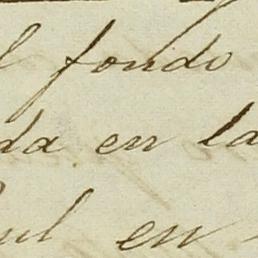 fondo
da en la
en